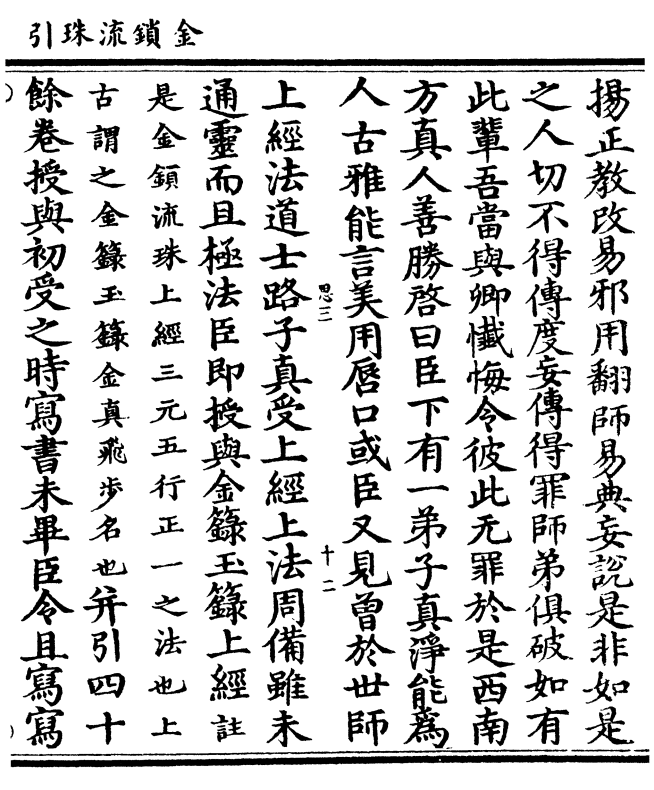 金鎖流珠引
揚正教改易邪用翻師易典妄說是非如是
之人切不得傳度妄傳得罪師弟俱破如有
此輩吾當與卿懺悔令彼此无罪於是西南
方真人善勝啓曰臣下有一弟子真淨能爲
人古雅能言美用唇口或臣又見曾於世師
思三 十二
上經法道士路子真受上經上法周備雖未
通靈而且極法臣即授與金籙玉籙上經註
是金鎖流珠上經三元五行正一之法也上
古謂之金籙玉籙金真飛步名也并引四十
餘卷授與初受之時寫書未畢臣令且寫寫